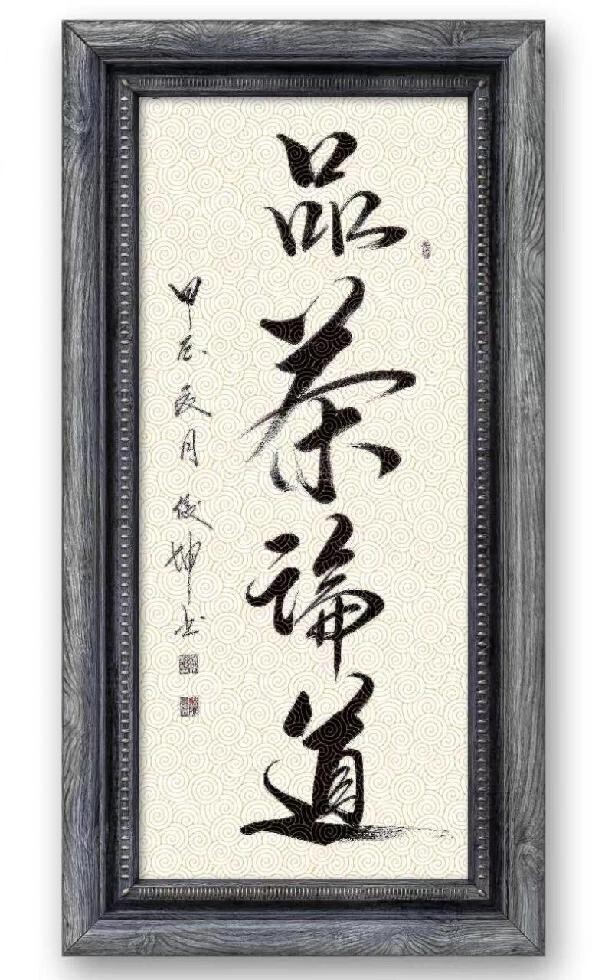 品茶論道
甲辰夏月俊坤书